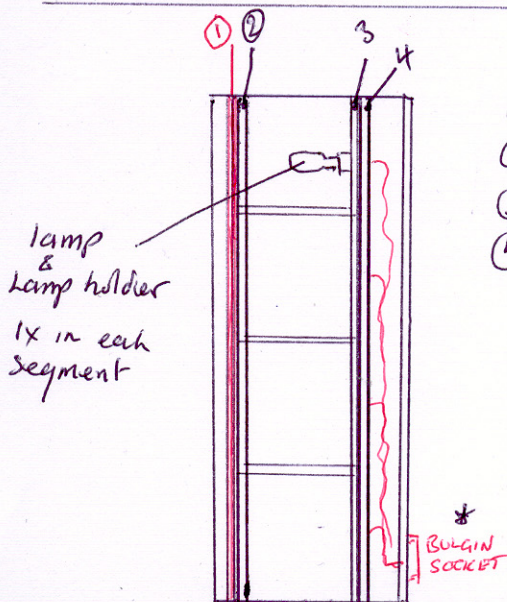 1 2 3 4
lamp
&
Lamp holder
1x in each
segment
*
BULGIN
SOCKET